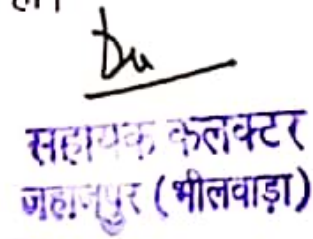 सहायक कलक्टर
जहाजपुर (भीलवाड़ा)